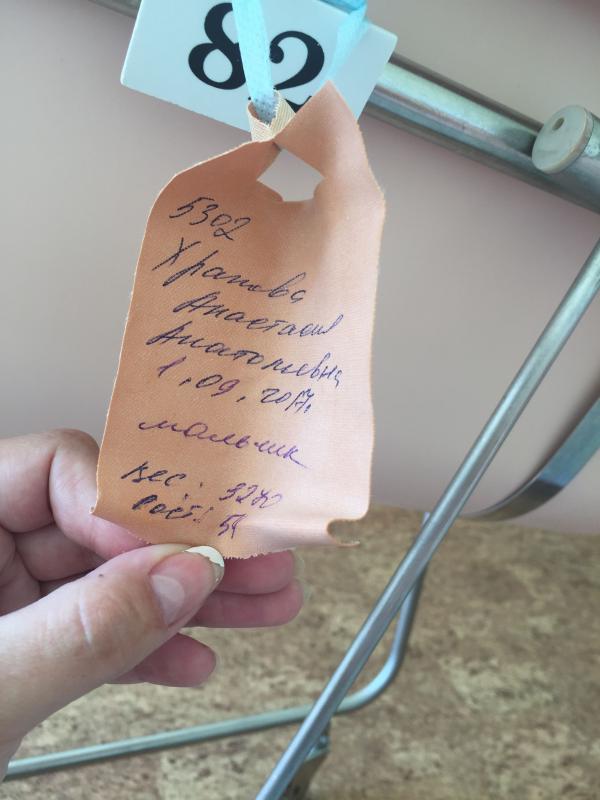 82
5302
Храмова
Анастасия
Анатольевна
1.09.2017.
мальчик
вес: 3240
рост: 54